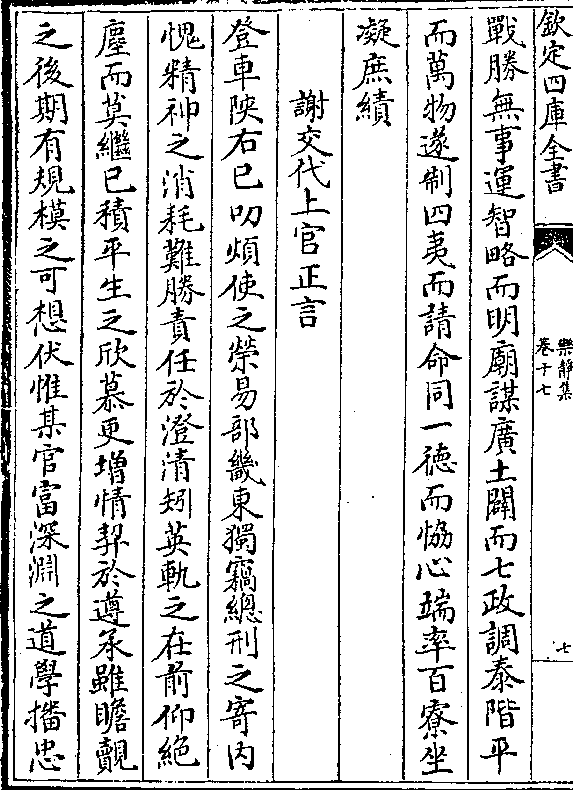 欽定四庫全書
樂靜集
卷十七
七
戰勝無事運智略而明廟謀廣土闢而七政調泰階平
而萬物遂制四夷而請命同一徳而恊心端率百寮坐
凝庶績
謝交代上官正言
登車陜右已叨煩使之榮易部畿東獨竊總刑之寄内
愧精神之消耗難勝責任於澄清矧英軌之在前仰絶
塵而莫繼已積平生之欣慕更增情契於遵承雖瞻覿
之後期有規模之可想伏惟某官富深淵之道學播忠